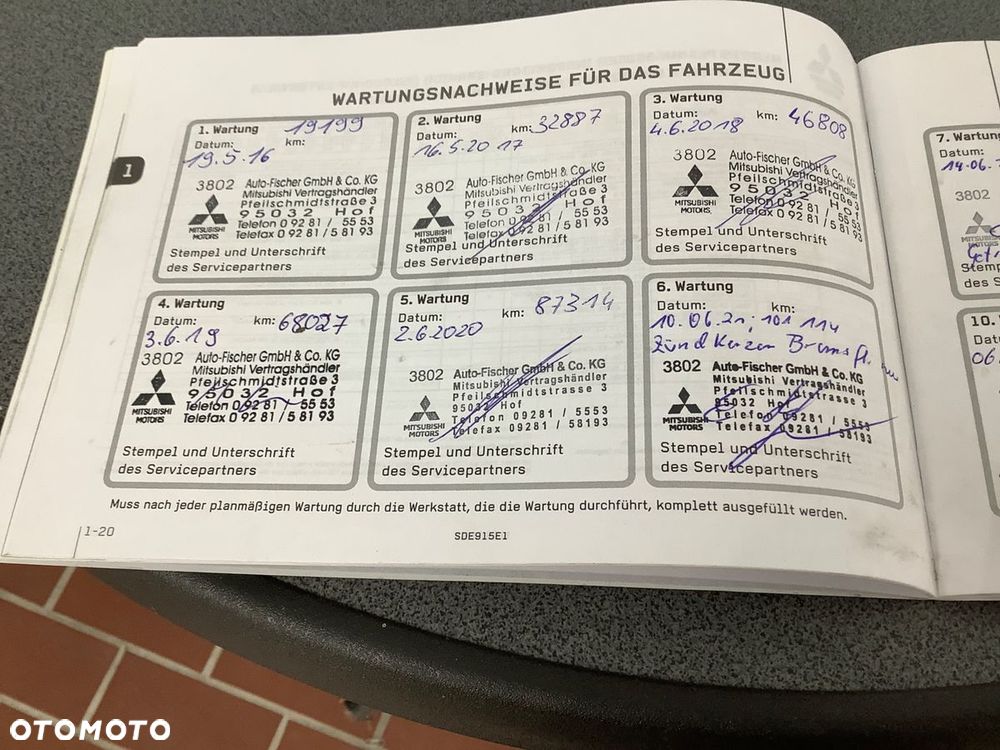 WARTUNGSNACHWEISE FÜR DAS FAHRZEUG
1
1. Wartung 19199
Datum: km:
19.5.16
3802 Auto-Fischer GmbH & Co. KG
Mitsubishi Vertragshändler
Pfeilschmidtstraße 3
95032 Hof
Telefon 0 92 81 / 55 53
Telefax 0 92 81 / 5 81 93
MITSUBISHI
MOTORS
Stempel und Unterschrift
des Servicepartners
2. Wartung
Datum: km: 32887
16.5.2017
3802 Auto-Fischer GmbH & Co. KG
Mitsubishi Vertragshändler
Pfeilschmidtstraße 3
95032 Hof
Telefon 0 92 81 / 55 53
Telefax 0 92 81 / 5 81 93
MITSUBISHI
MOTORS
Stempel und Unterschrift
des Servicepartners
3. Wartung
Datum: km: 46808
4.6.2018
3802 Auto-Fischer GmbH & Co. KG
Mitsubishi Vertragshändler
Pfeilschmidtstraße 3
95032 Hof
Telefon 0 92 81 / 55 53
Telefax 0 92 81 / 5 81 93
MITSUBISHI
MOTORS
Stempel und Unterschrift
des Servicepartners
4. Wartung
Datum: km: 68027
3.6.19
3802 Auto-Fischer GmbH & Co. KG
Mitsubishi Vertragshändler
Pfeilschmidtstraße 3
95032 Hof
Telefon 0 92 81 / 55 53
Telefax 0 92 81 / 5 81 93
MITSUBISHI
MOTORS
Stempel und Unterschrift
des Servicepartners
5. Wartung
Datum: km: 87314
2.6.2020
3802 Auto-Fischer GmbH & Co. KG
Mitsubishi Vertragshändler
Pfeilschmidtstrasse 3
95032 Hof
Telefon 09281 / 5553
Telefax 09281 / 58193
MITSUBISHI
MOTORS
Stempel und Unterschrift
des Servicepartners
6. Wartung
Datum: km:
10.06.21; 101 114
Zündkerzen Bremsfl.
3802 Auto-Fischer GmbH & Co. KG
Mitsubishi Vertragshändler
Pfeilschmidtstrasse 3
95032 Hof
Telefon 09281 / 5553
Telefax 09281 / 58193
MITSUBISHI
MOTORS
Stempel und Unterschrift
des Servicepartners
Muss nach jeder planmäßigen Wartung durch die Werkstatt, die die Wartung durchführt, komplett ausgefüllt werden.
1-20
SDE915E1
7. Wartun
Datum:
14.06.
3802
MITSUBISHI
MOTORS
Stemp
des S
10.
Dat
06.
OTOMOTO